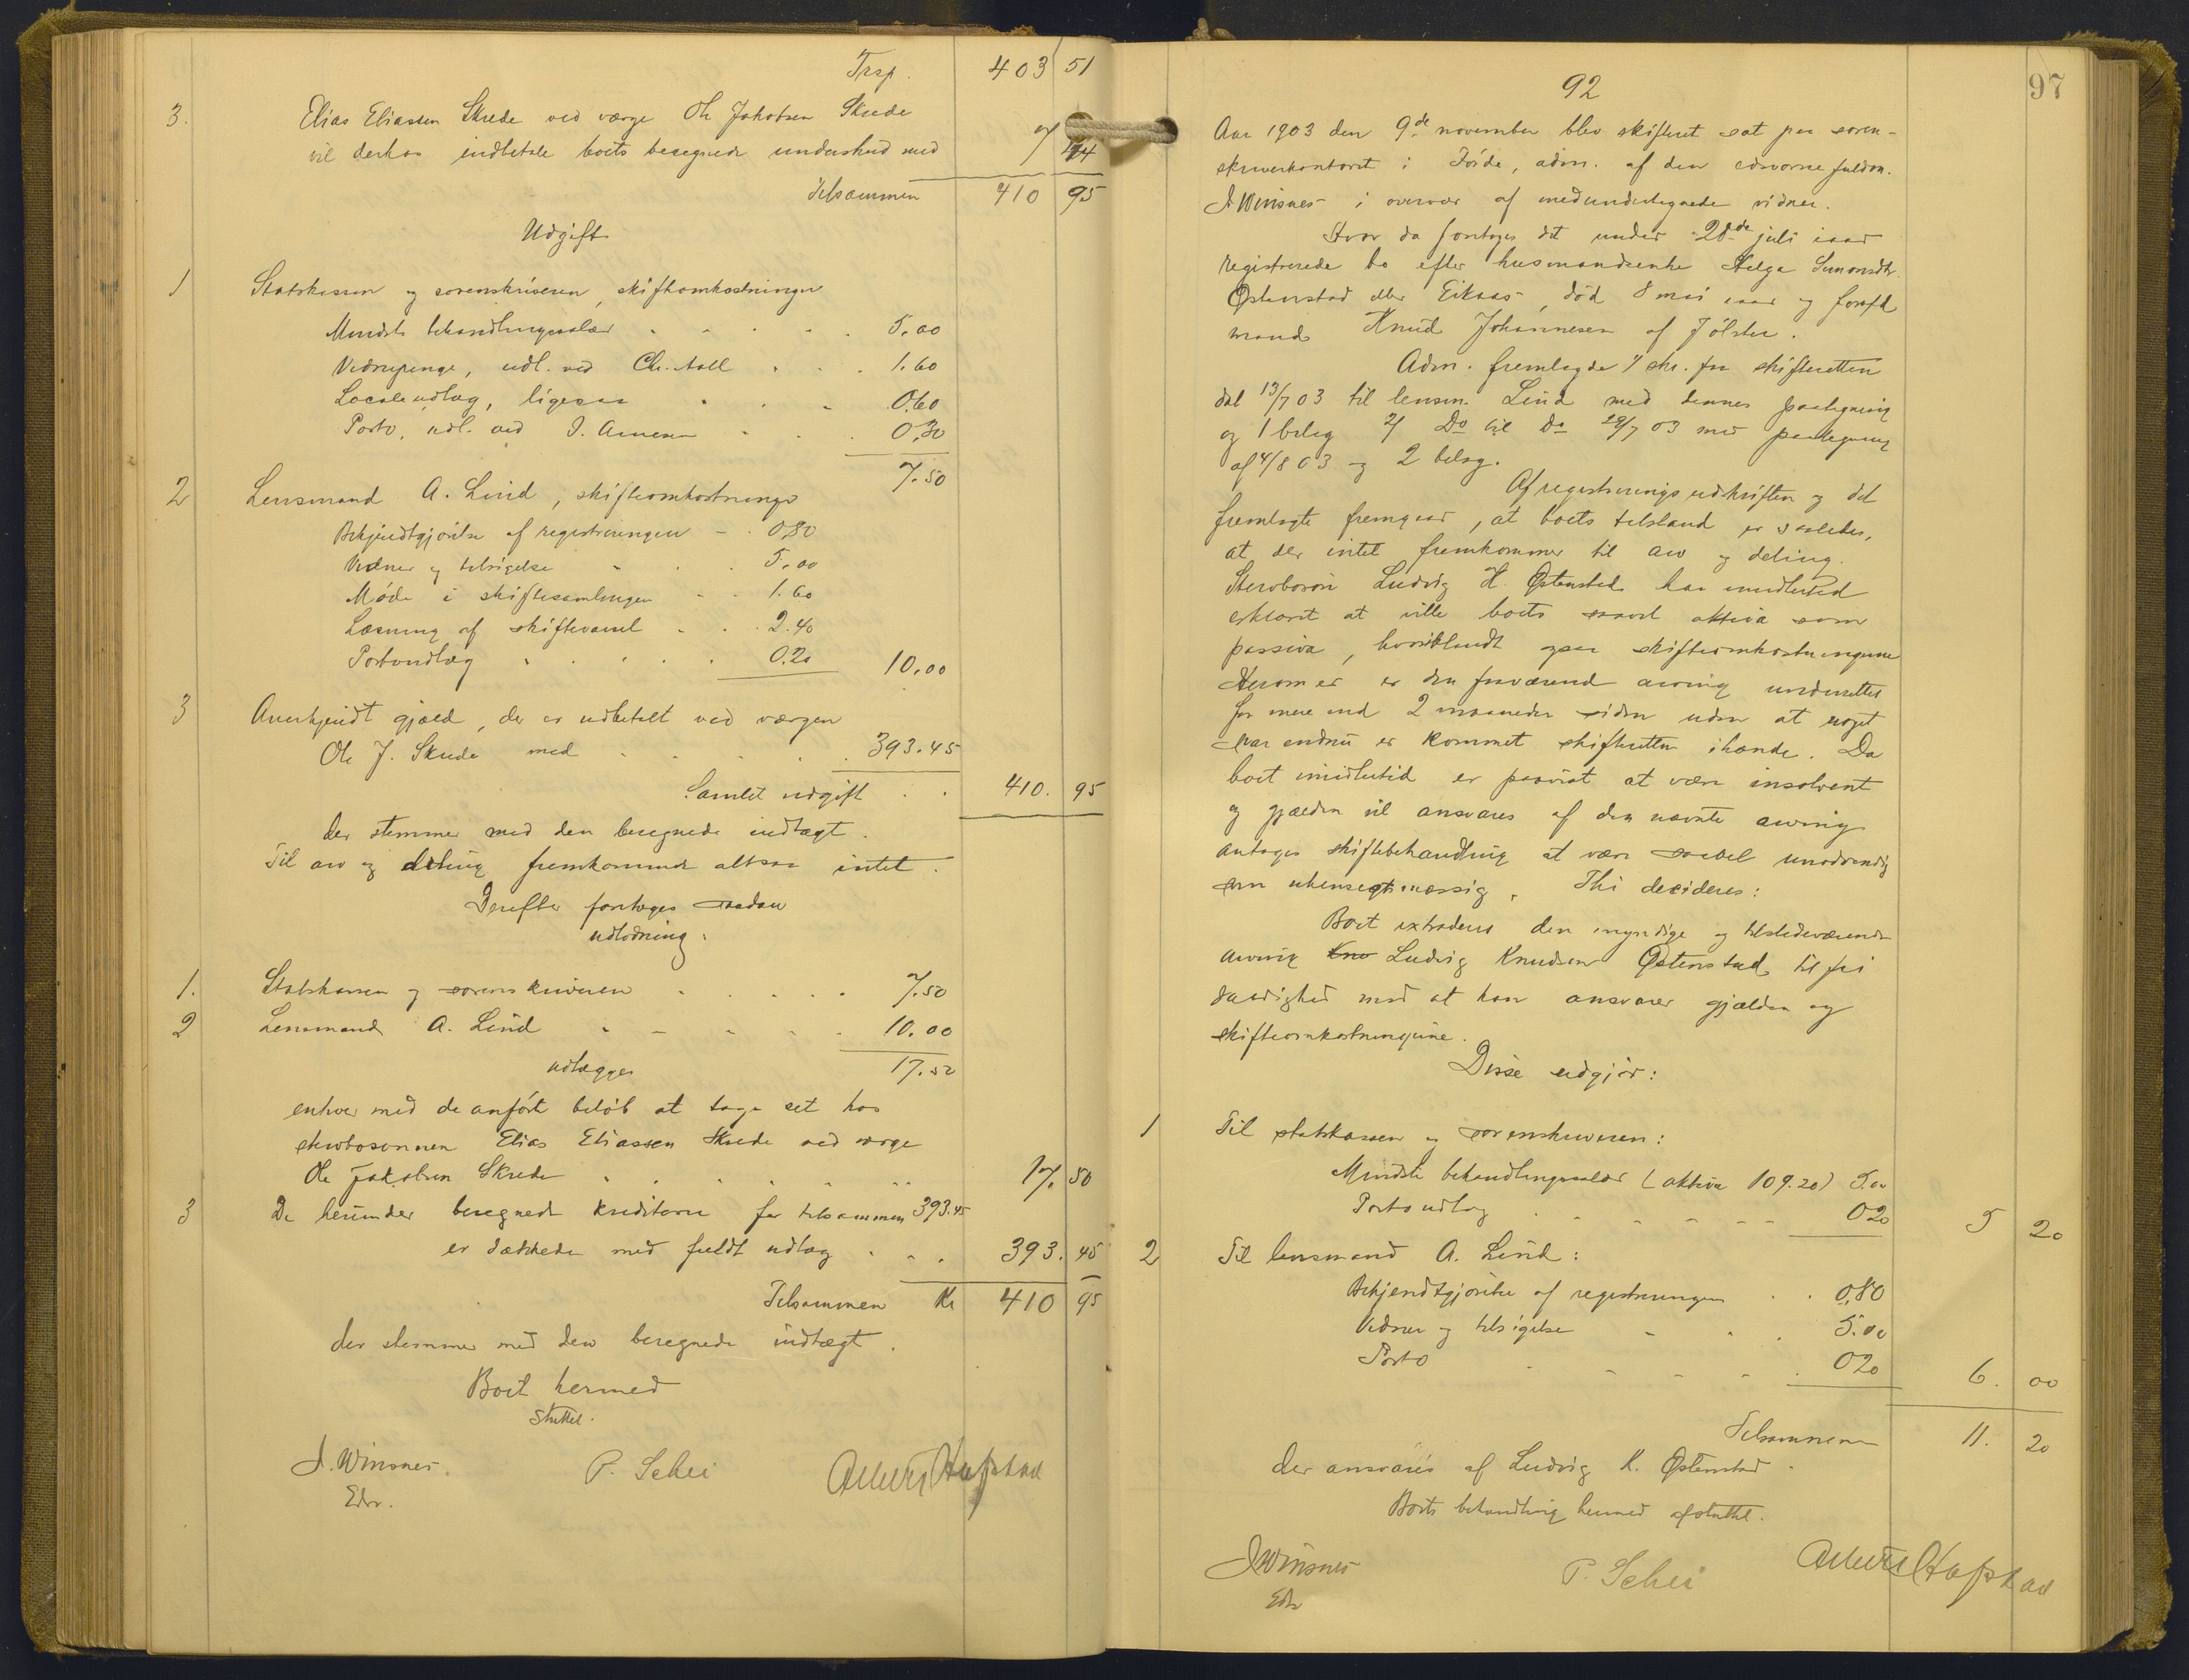 Trsp. 403 51
3. Elias Eliassen Skrede ved værge Ole Jakobsen Skrede
vil derhos indbetale boets beregnede underskud med 7 44
Tilsammen 410 95
Udgift
1 Statskassen og sorenskriveren, skifteomkostninger
Mindste behandlingssalær 5.00
Vidnepenge, udl. ved Chr. Aall 1.60
Locale udlæg, ligesaa 0.60
Porto, udl. ved I. 0.30
7.50
2 Lensmand A. Lind, skifteomkostninger
Bekjendtgjørelse af registreringen 0.80
Vidner og tilsigelse 5.00
Møde i skiftesamlingen 1.60
Læsning af skiftevarsel 2.40
Portoudlæg 0.20 10.00
3 Anerkjendt gjæld, der er udbetalt ved værgen
Ole J. Skrede med 393.45
Samlet udgift 410. 95
der stemmer med den beregnede indtægt.
Til arv og deling fremkommer altsaa intet.
Derefter foretoges saadan
udlodning:
1. Statskassen og sorenskriveren 7.50
2 Lensmand A. Lind 10.00
udlægges 17.50
enhver med de anførte beløb at tage ud hos
stervbosønnen Elias Eliassen Skrede ved værge
Ole Jakobsen Skrede 17. 50
3 De herunder beregnede kreditorer før tilsammen 393.45
er dækkede med fuldt udlæg 393. 45
Tilsammen Kr 410 95
der stemmer med den beregnede indtægt.
Boet hermed
sluttet.
J. Winsnes. P. Schei Albert Hafstad
Edsv.
97
92
Aar 1903 den 9de november blev skifteret sat paa soren-
skriverkontoret i Førde, adm. af den edsvorne fuldm.
J Winsnes i overvær af medundertegnede vidner.
Hvor da foretoges det under 28de juli iaar
registrerede bo efter husmandsenke Helga Simonsdtr.
Østenstad eller Eikaas, død 8 mai iaar og forafd.
mand Knud Johannesen af Jølster.
Adm. fremlagde 1/ skr. fra skifteretten
dat 13/7 03 til lensm. Lind med dennes paategning
og 1 bilag 2/ Do til Do 29/7 03 med paategning
af 4/8 03 og 2 bilag.
Af registreringsudskriften og det
fremlagte fremgaar, at boets tilstand er saaledes,
at der intet fremkommer til arv og deling.
Stervbosøn Ludvig K. Østenstad har imidlertid
erklæret at ville boets saavel aktiva som
passiva, hvoriblandt ogsaa skifteomkostningerne
Herom er den fraværende arving underrettet
for mere end 2 maaneder siden uden at noget
svar endnu er kommet skifteretten ihænde. Da
boet imidlertid er paavist at være insolvent
og gjælden vil ansvares af den nævnte arving
antages skiftebehandling at være saavel unødvendig
som uhensigtsmæssig. Thi decideres:
Boet extraderes den myndige og tilstedeværende
arving Knu Ludvig Knudsen Østenstad til fri
raadighed mod at han ansvarer gjælden og
skifteomkostningerne.
Disse udgjør:
1 Til statskassen og sorenskriveren:
Mindste behandlingssalær (aktiva 109.20) 5.00
Portoudlæg 0 20 5 20
2 Til lensmand A. Lind:
Bekjendtgjørelse af registreringen 0.80
Vidner og tilsigelse 5.00
Porto 0 20 6. 00
Tilsammen 11. 20
der ansvares af Ludvig K. Østenstad.
Boets behandling hermed afsluttet.
J Winsnes P. Schei Albert Hafstad
Edsv